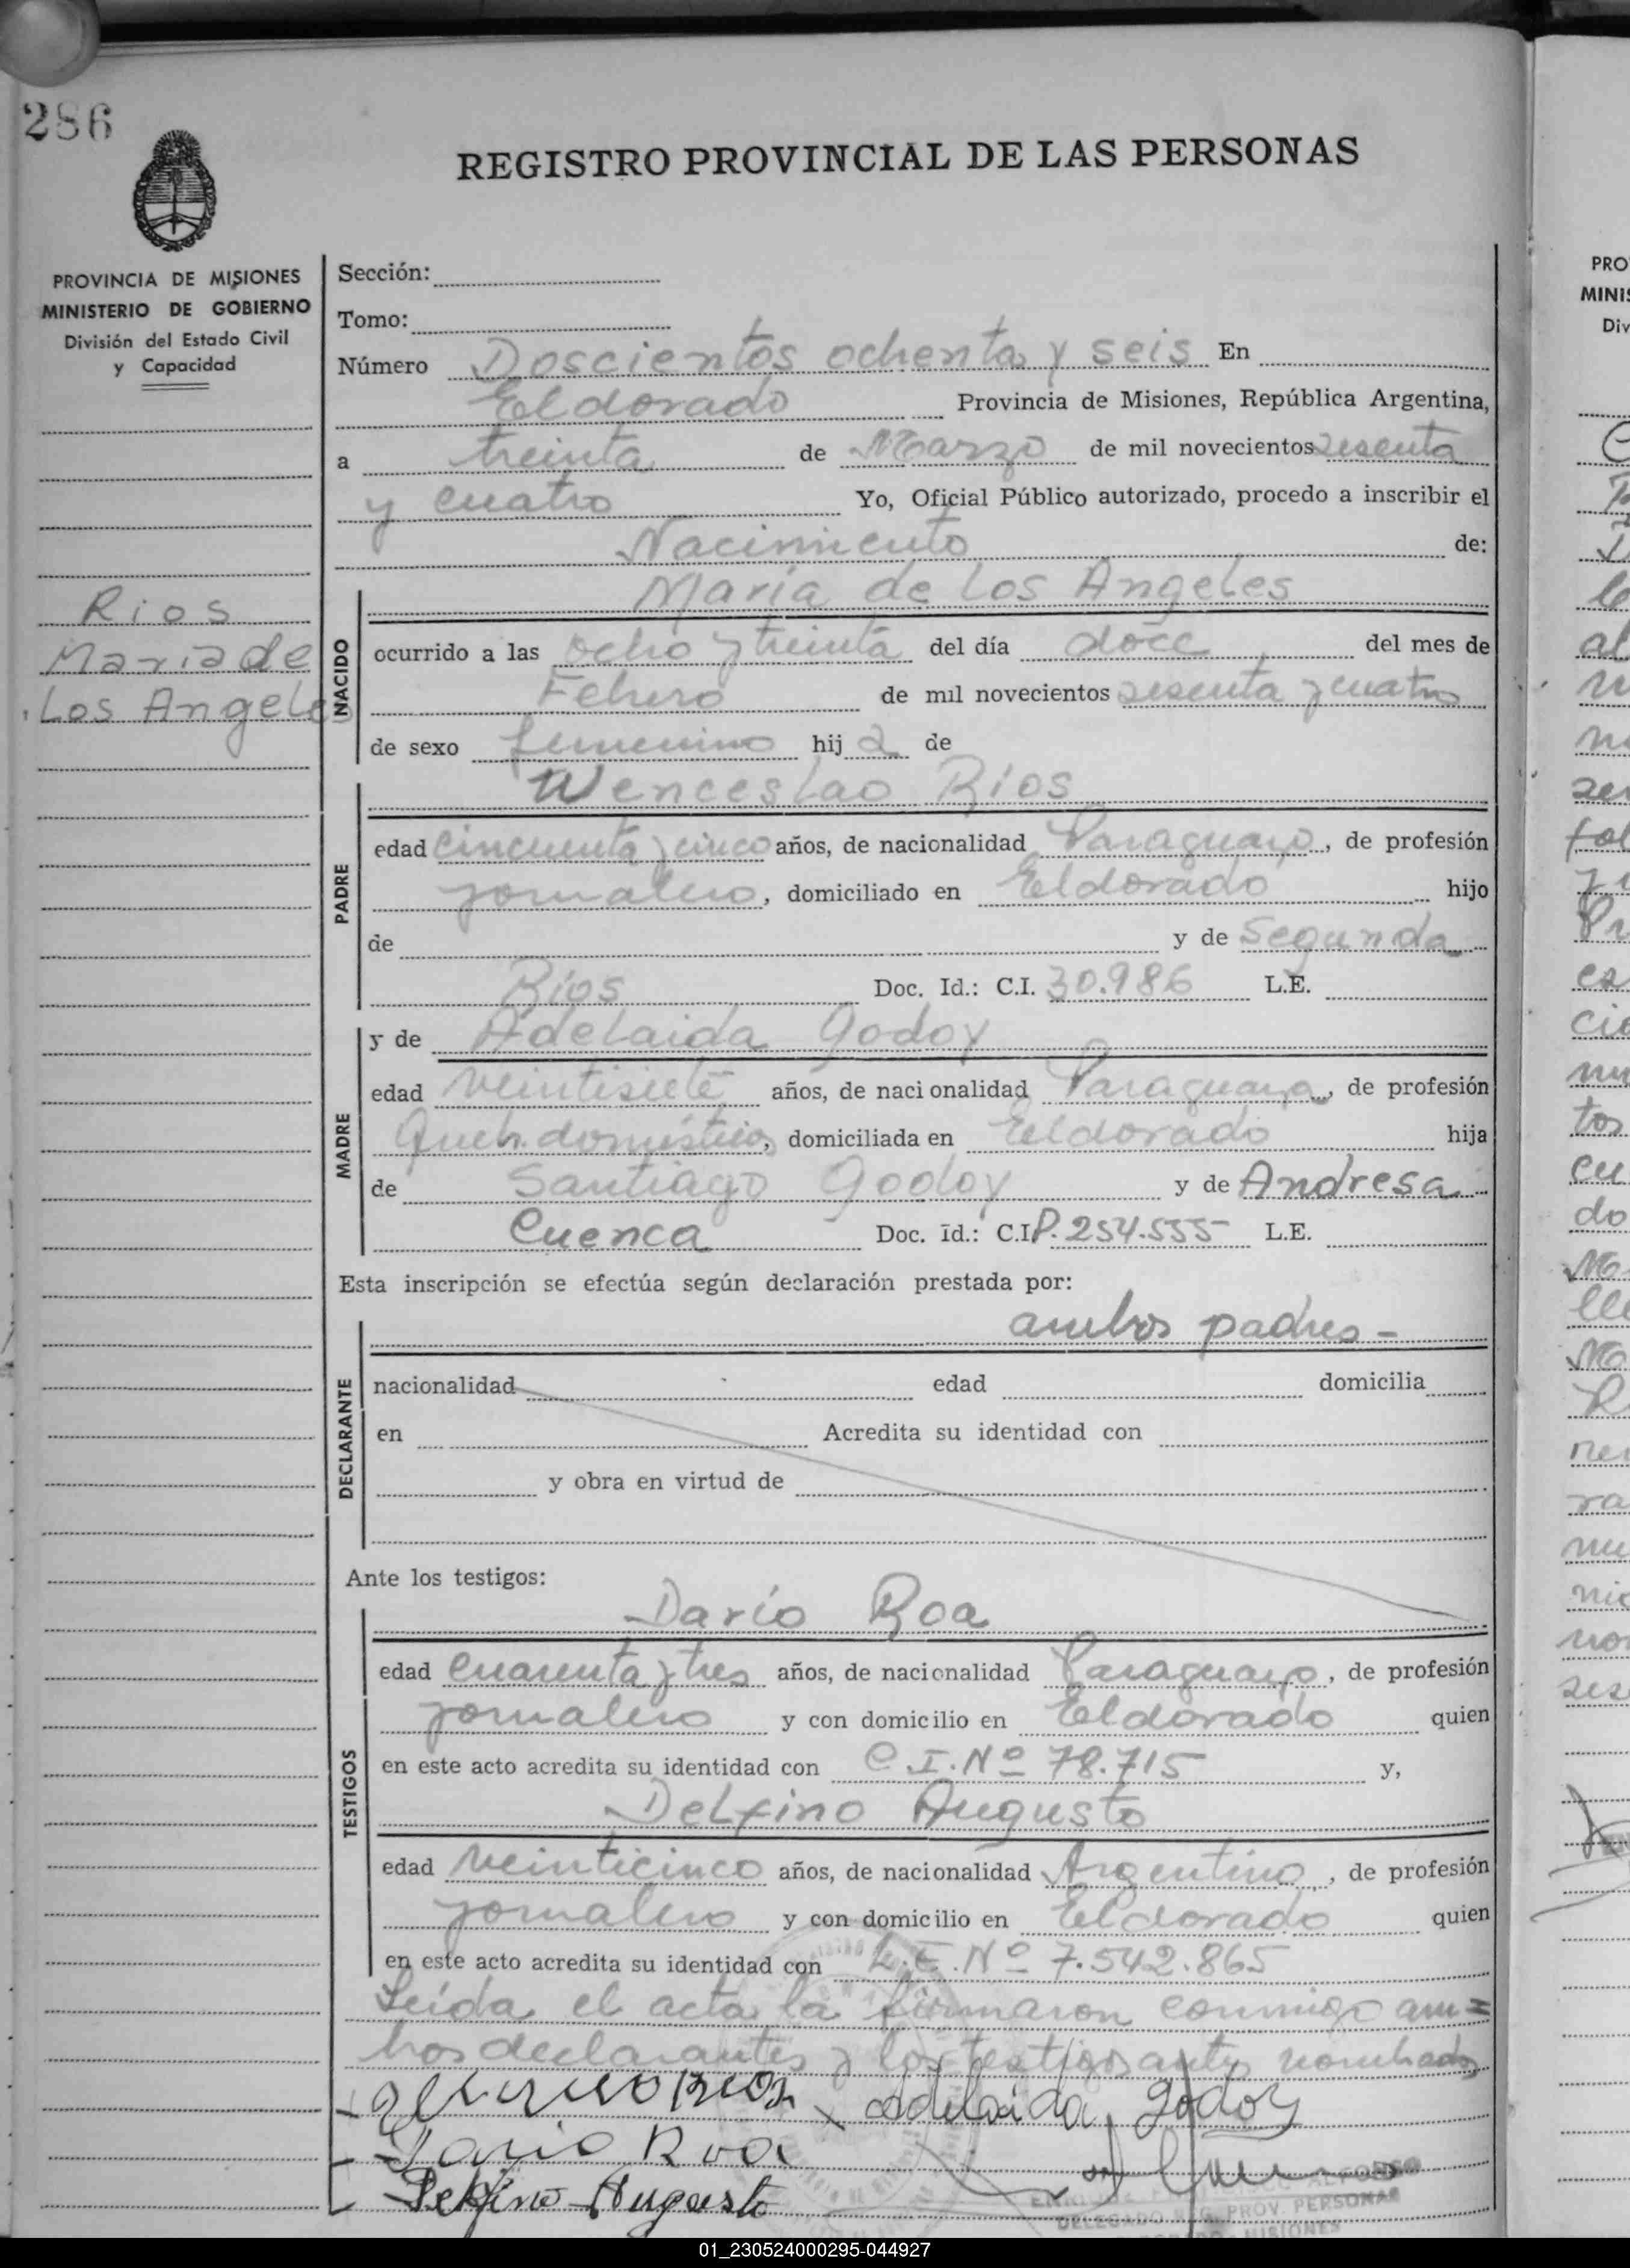 286
REGISTRO PROVINCIAL DE LAS PERSONAS
PROVINCIA DE MISIONES
MINISTERIO DE GOBIERNO
División del Estado Civil
y Capacidad
Rios
Maria de
Los Angeles
Sección:
Tomo:
Número Doscientos ochenta y seis En
Eldorado Provincia de Misiones, República Argentina,
a treinta de Marzo de mil novecientos sesenta
y cuatro Yo, Oficial Público autorizado, procedo a inscribir el
Nacimiento de:
María de Los Angeles
NACIDO
ocurrido a las ocho y treinta del día doce del mes de
Febrero de mil novecientos sesenta y cuatro
de sexo femenino hija de
Wenceslao Ríos
PADRE
edad cincuenta y cinco años, de nacionalidad Paraguayo, de profesión
jornalero, domiciliado en Eldorado hijo
de y de Segunda
Ríos Doc. Id.: C.I. 30.986 L.E.
MADRE
y de Adelaida Godoy
edad veintisiete años, de nacionalidad Paraguaya, de profesión
Queh. domésticos, domiciliada en Eldorado hija
de Santiago Godoy y de Andresa
Cuenca Doc. Id.: C.I. P. 254.555 L.E.
Esta inscripción se efectúa según declaración prestada por:
ambos padres -
DECLARANTE
nacionalidad edad domicilia
en Acredita su identidad con
y obra en virtud de
Ante los testigos:
Darío Roa
TESTIGOS
edad cuarenta y tres años, de nacionalidad Paraguayo, de profesión
jornalero y con domicilio en Eldorado quien
en este acto acredita su identidad con C.I. Nº 78.715 y,
Delfino Augusto
edad veinticinco años, de nacionalidad Argentino, de profesión
jornalero y con domicilio en Eldorado quien
en este acto acredita su identidad con L.E. Nº 7.542.865
Leída el acta la firmaron conmigo am=
bos declarantes y los testigos antes nombrados
Adelaida Godoy
Dario Roa
Delfino Augusto
DELEGADO REG. PROV. PERSONAS
MISIONES
01_230524000295-044927